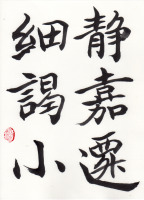 静嘉
細謁小